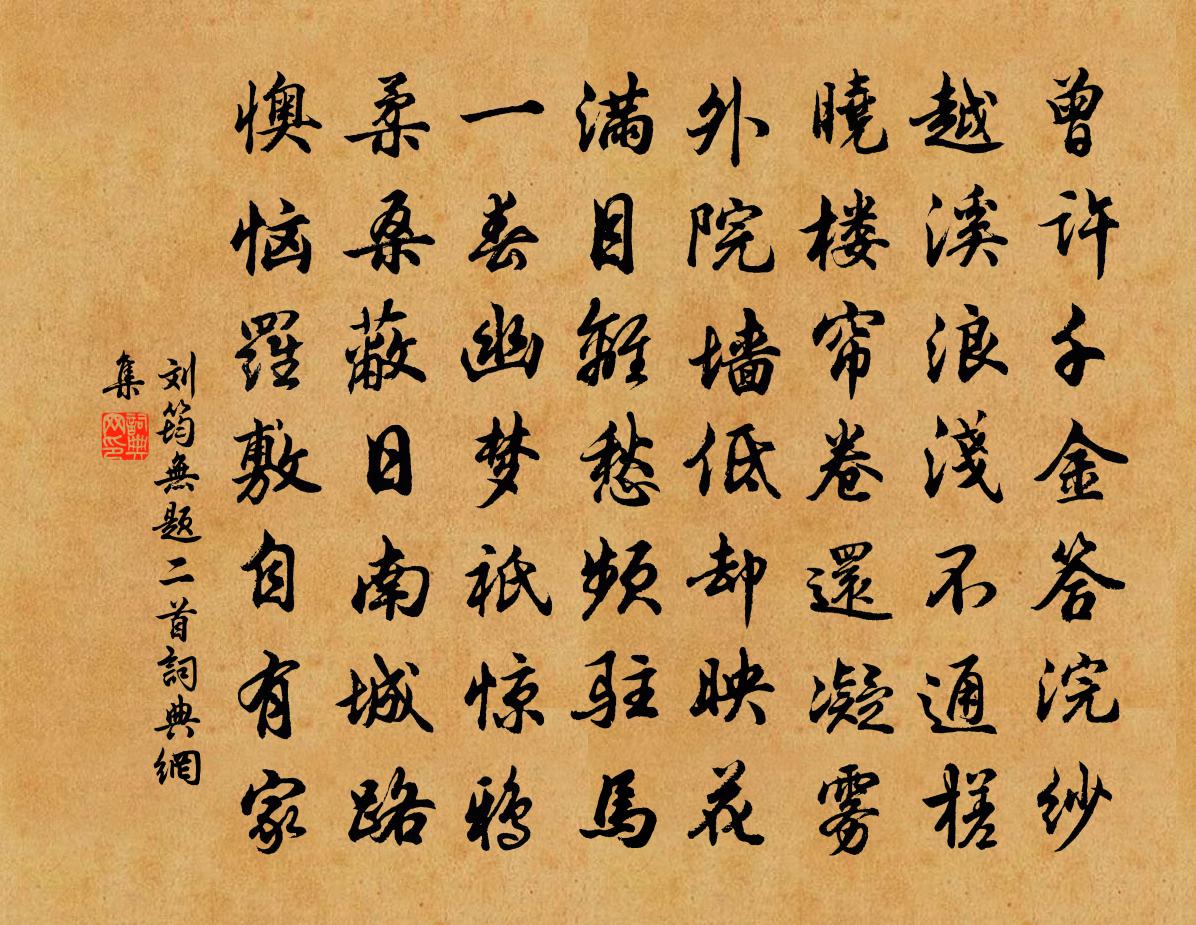 曾许千金答浣纱
越溪浪淺不通槎
曉楼帘卷還凝雾
外院墙低却映花
满目離愁頻駐馬
一春幽梦祇惊鸦
柔桑蔽日南城路
懊恼羅敷自有家
刘筠無题二首詞典網
集
詞典
网印